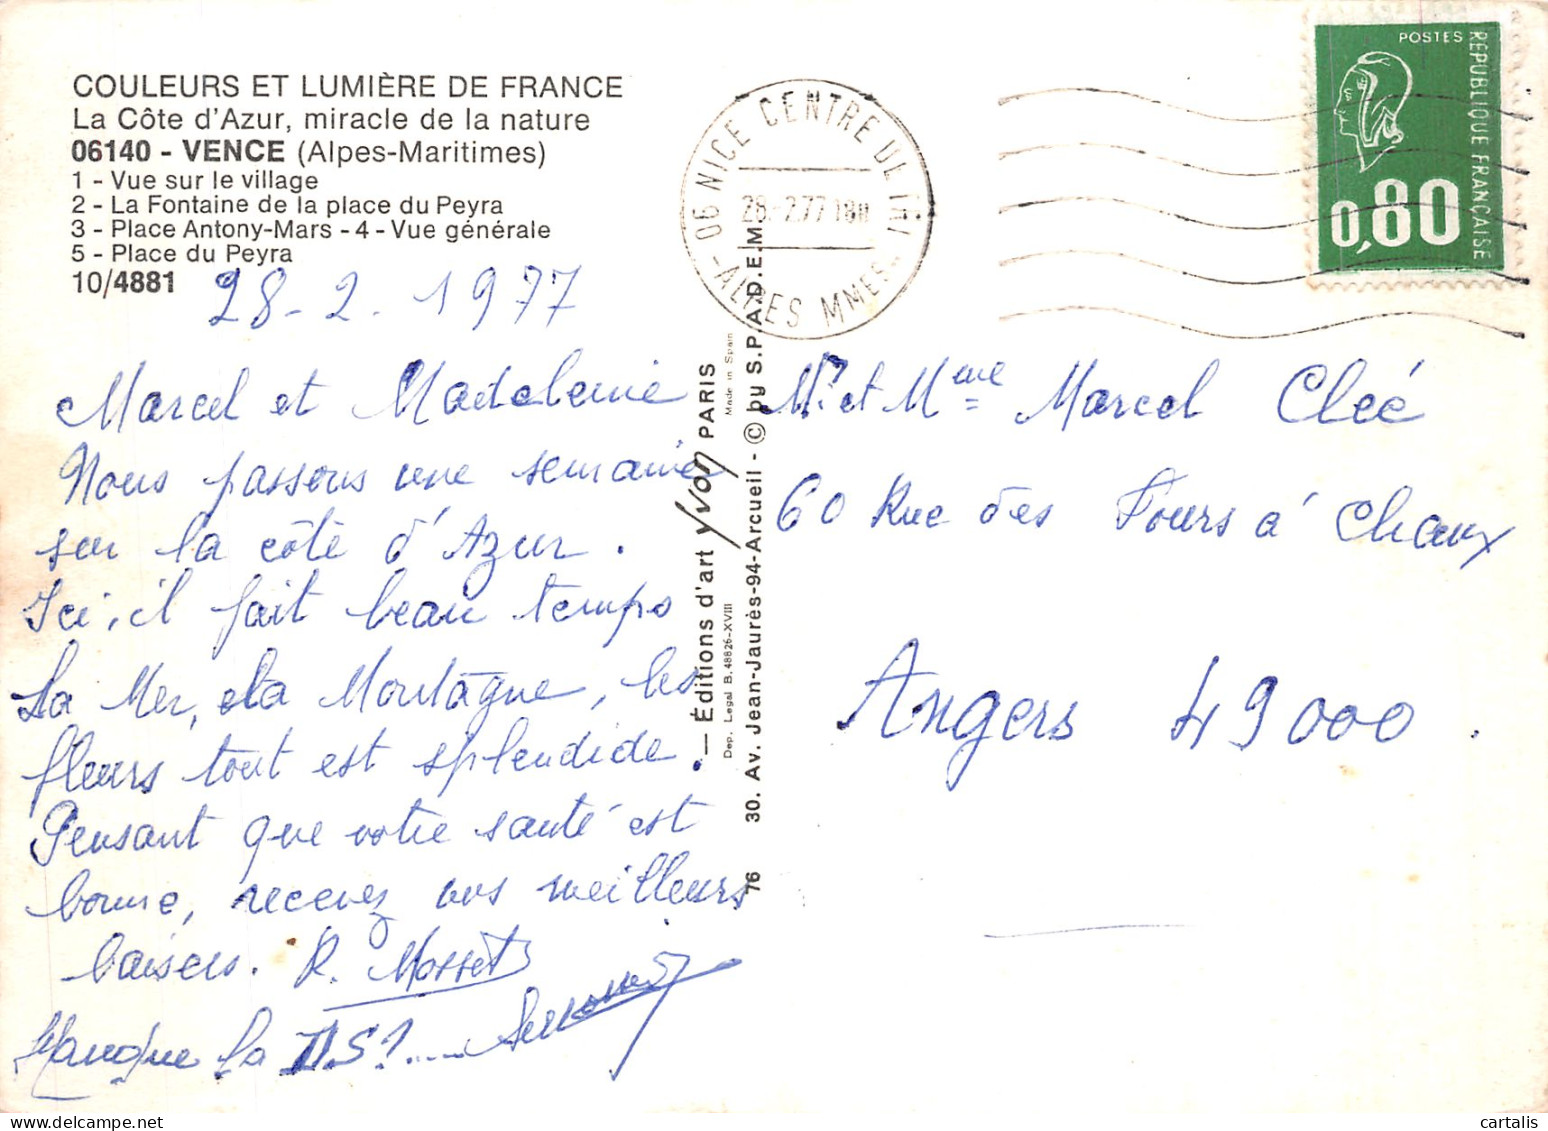 COULEURS ET LUMIÈRE DE FRANCE
La Côte d'Azur, miracle de la nature
06140 - VENCE (Alpes-Maritimes)
1 - Vue sur le village
2 - La Fontaine de la place du Peyra
3 - Place Antony-Mars - 4 - Vue générale
5 - Place du Peyra
10/4881
28-2.1977
Marcel et Madeleine
Nous passons une semaine
sur la côte d'Azur.
Ici, il fait beau temps
La Mer, la Montagne, les
fleurs tout est splendide.
Pensant que votre santé est
bonne, recevez nos meilleurs
baisers. R. Mosset
Manque la
— Éditions d'art Yvon PARIS
Made in Spain
Dep. Legal B. 48826-XVIII
76 30. Av. Jean-Jaurès-94-Arcueil - © by S.P.A.D.E.M.
06 NICE CENTRE DE TRI
28-2.77 18H
-ALPES MMES-
POSTES
REPUBLIQUE FRANÇAISE
0,80
Mr et Mme Marcel Cleé
60 Rue des Fours à Chaux
Angers 49000.
cartalis